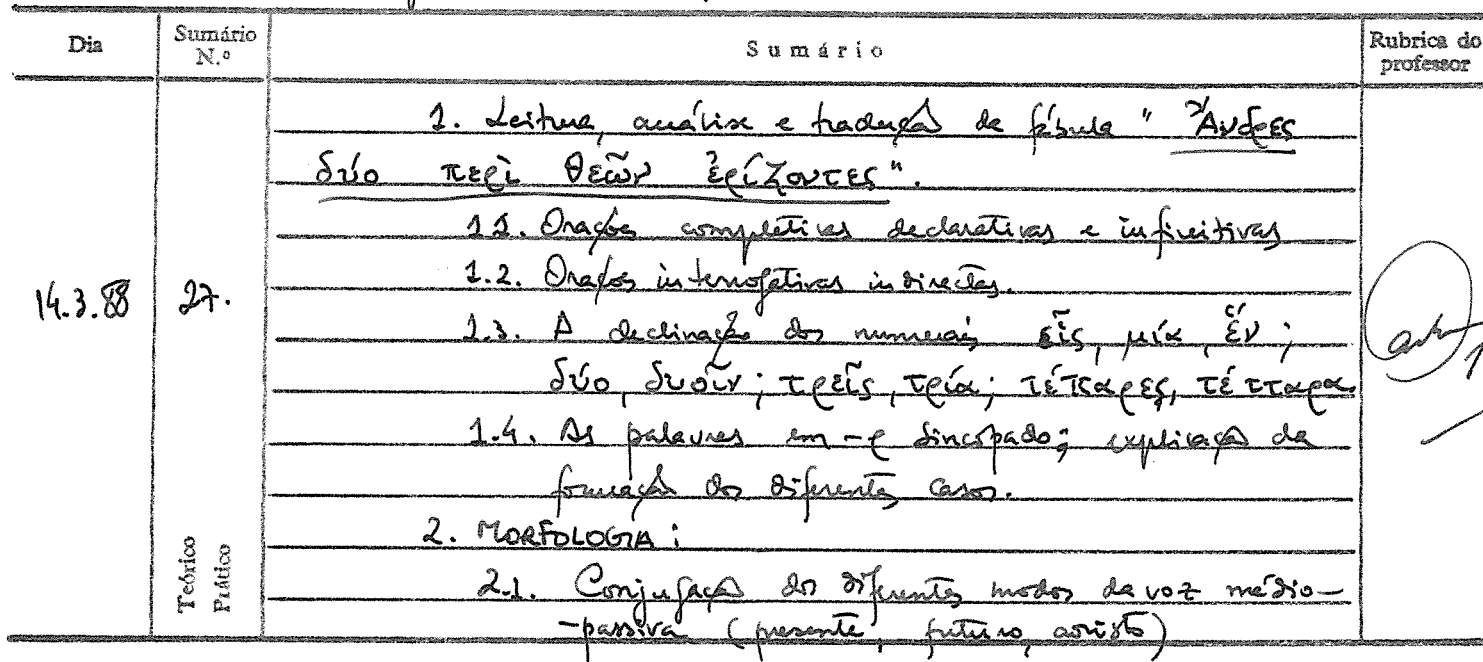 Dia
Sumário N.º
Sumário
Rubrica do professor
14.3.88
27.
Teórico
Prático
1. Leitura, análise e tradução da fábula "Ἄνδρες
δύο περὶ θεῶν ἐρίζοντες".
1.1. Orações completivas declarativas e infinitivas
1.2. Orações interrogativas indirectas.
1.3. A declinação dos numerais εἷς, μία, ἕν;
δύο, δυοῖν; τρεῖς, τρία; τέτταρες, τέτταρα
1.4. As palavras em -ρ sincopado; explicação da
formação dos diferentes casos.
2. MORFOLOGIA:
2.1. Conjugação dos diferentes modos da voz médio-
-passiva (presente, futuro, aoristo)